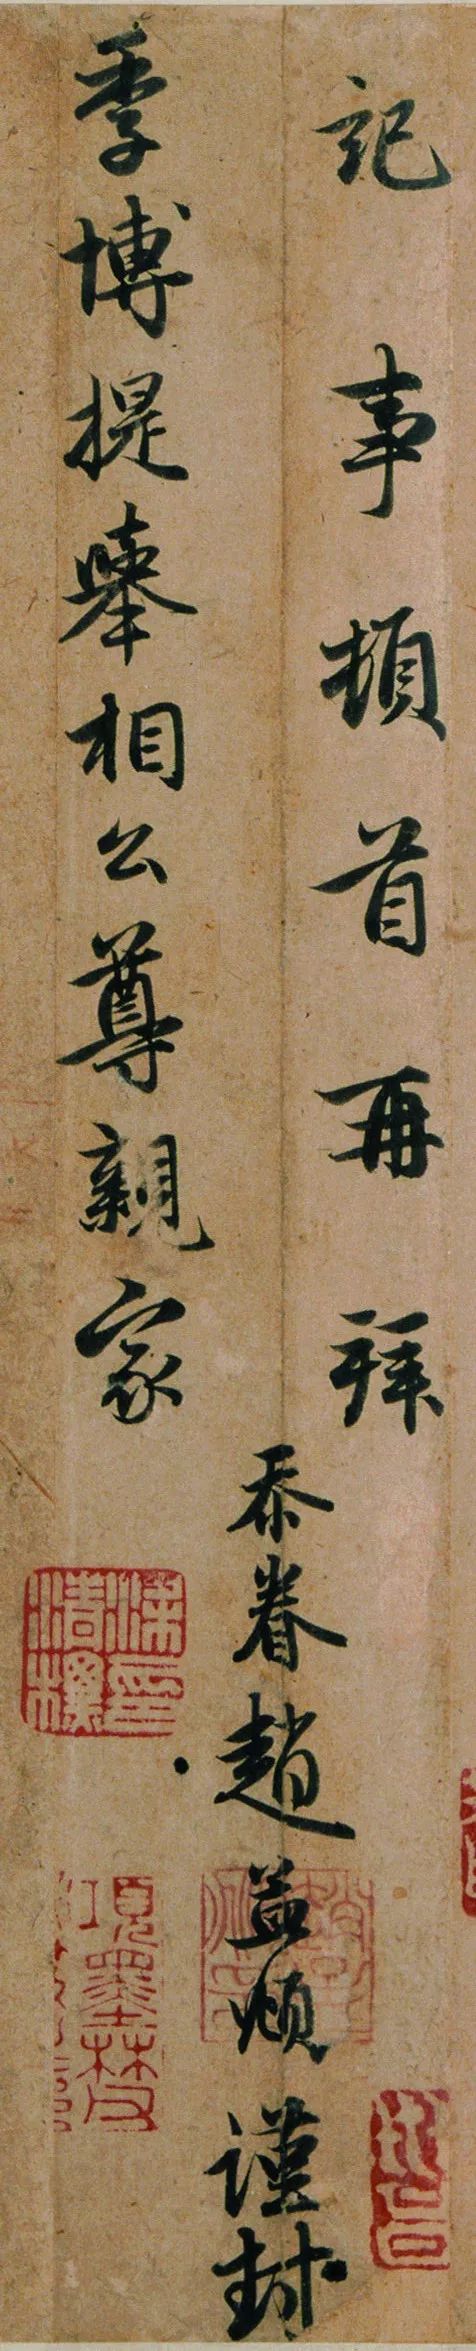 記事頓首再拜
季博提舉相公尊親家
忝眷趙孟頫謹封
項墨林父